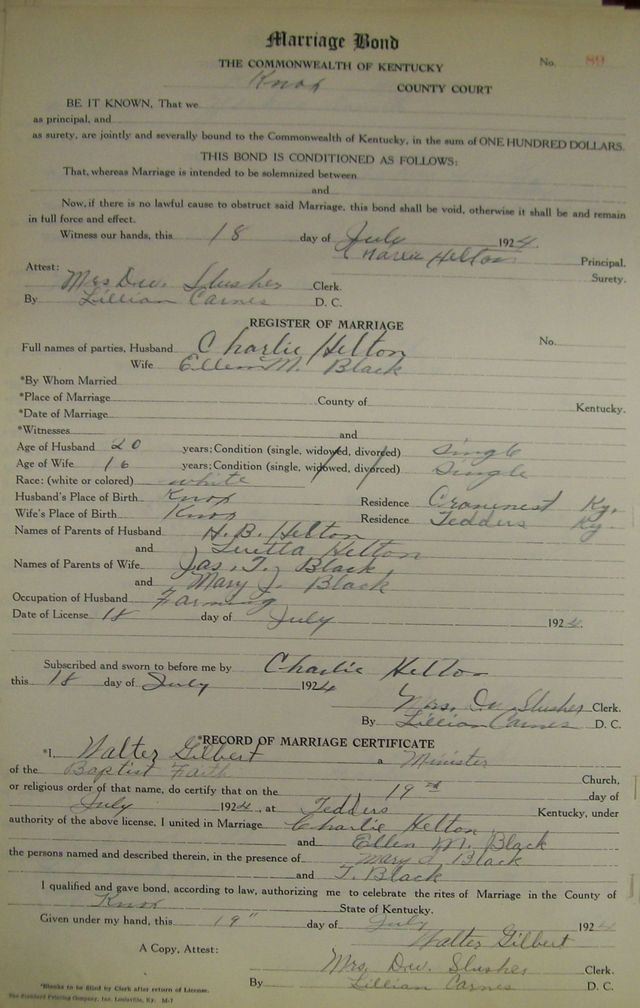 Marriage Bond
THE COMMONWEALTH OF KENTUCKY
No. 89
Knox COUNTY COURT
BE IT KNOWN, That we
as principal, and
as surety, are jointly and severally bound to the Commonwealth of Kentucky, in the sum of ONE HUNDRED DOLLARS.
THIS BOND IS CONDITIONED AS FOLLOWS:
That, whereas Marriage is intended to be solemnized between
and
Now, if there is no lawful cause to obstruct said Marriage, this bond shall be void, otherwise it shall be and remain
in full force and effect.
Witness our hands, this 18 day of July 1924.
Charlie Helton Principal.
Surety.
Attest:
Mrs Dw. Slusher Clerk.
By Lillian Carnes D. C.
REGISTER OF MARRIAGE
Full names of parties, Husband Charlie Helton No.
Wife Ellen M. Black
*By Whom Married
*Place of Marriage County of Kentucky.
*Date of Marriage
*Witnesses and
Age of Husband 20 years; Condition (single, widowed, divorced) Single
Age of Wife 16 years; Condition (single, widowed, divorced) Single
Race: (white or colored) white
Husband's Place of Birth Knox Residence Cranenest Ky.
Wife's Place of Birth Knox Residence Tedders Ky
Names of Parents of Husband H. B. Helton
and Luetta Helton
Names of Parents of Wife Jas. T. Black
and Mary J. Black
Occupation of Husband Farming
Date of License 18 day of July 1924.
Subscribed and sworn to before me by Charlie Helton
this 18 day of July 1924
Mrs. Dw Slusher Clerk.
By Lillian Carnes D. C.
*RECORD OF MARRIAGE CERTIFICATE
*I, Walter Gilbert a Minister
of the Baptist Faith Church,
or religious order of that name, do certify that on the 19 day of
July 1924, at Tedders Kentucky, under
authority of the above license, I united in Marriage Charlie Helton
and Ellen M. Black
the persons named and described therein, in the presence of Mary J. Black
and T. Black
I qualified and gave bond, according to law, authorizing me to celebrate the rites of Marriage in the County of
Knox State of Kentucky.
Given under my hand, this 19" day of July 1924
Walter Gilbert
A Copy, Attest:
Mrs. Dw. Slusher Clerk
By Lillian Carnes D. C.
*Blanks to be filled by Clerk after return of License.
The Standard Printing Company, Inc. Louisville, Ky. M-7